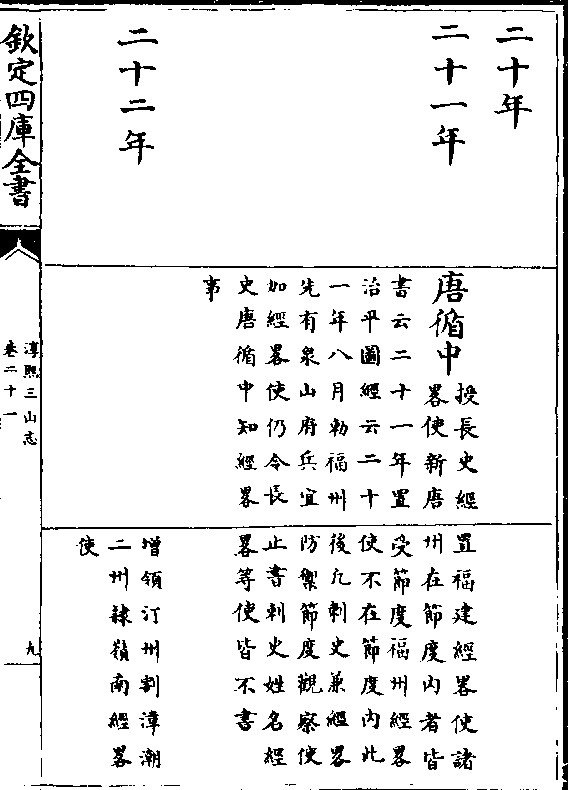 二十年
二十一年
唐循中
授長史經
畧使新唐
書云二十一年置
治平圖經云二十
一年八月勅福州
先有泉山府兵宜
加經畧使仍令長
史唐循中知經畧
事
置福建經畧使諸
州在節度内者皆
受節度福州經畧
使不在節度内此
後凡刺史兼經畧
防禦節度觀察使
止書刺史姓名經
畧等使皆不書
二十二年
增領汀州割漳潮
二州隸嶺南經畧
使
欽定四庫全書
淳熙三山志
卷二十一
九